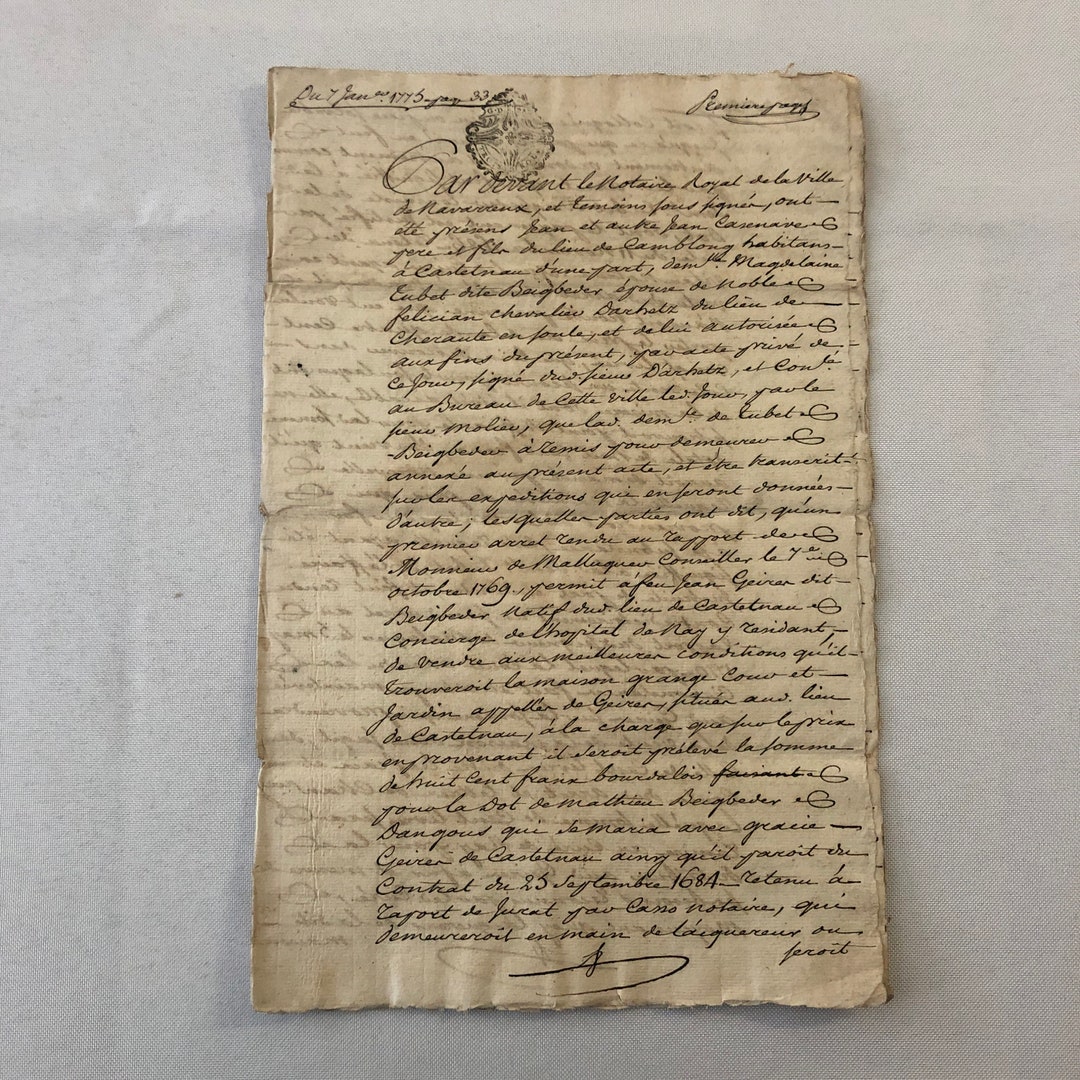 Du 7 Janer 1775 pag 33
Premiere page
Par devant le Notaire Royal de la Ville
de Navarreux, et temoins sous signés, ont
eté présens Jean et autre Jean Casenave
pere et fils du lieu de Camblong habitans
à Castetnau d'une part, demlle Magdelaine
Tubet dite Beigbeder épouse de Noble
felician chevalier Darhetz du lieu de
Cheraute en soule, et de lui autorisée
aux fins du présent, par acte privé de
ce Jour, signé dud. sieur Darhetz, et Conlé
au Bureau de Cette ville led. Jour, par le
sieur Molier, que lad. demlle de Tubet
Beigbeder à remis pour demeurer
annexé au présent acte, et être transcrit
sur les expeditions qui en seront données
d'autre; lesquelles parties ont dit, qu'un
premier arret rendu au rapport de
Monsieur de Malluquer Conseiller le 7e
octobre 1769. permit à feu Jean Geires dit
Beigbeder Natif dud. lieu de Castetnau
Concierge de l'hopital de Nay y residant,
de vendre aux meilleures conditions qu'il
trouveroit la maison grange Cour et
Jardin appellés de Geires, située aud. lieu
de Castetnau, à la charge que sur le prix
en provenant il seroit prélevé la somme
de huit Cent franx bourdalois faisant
pour la Dot de Mathieu Beigbeder
Dangous qui se maria avec gracie
Geires de Castetnau ainsy qu'il paroit du
Contrat du 25 Septembre 1684 retenu à
raport de Jurat par Casso notaire, qui
demeureroit en main de l'acquereur ou
seroit